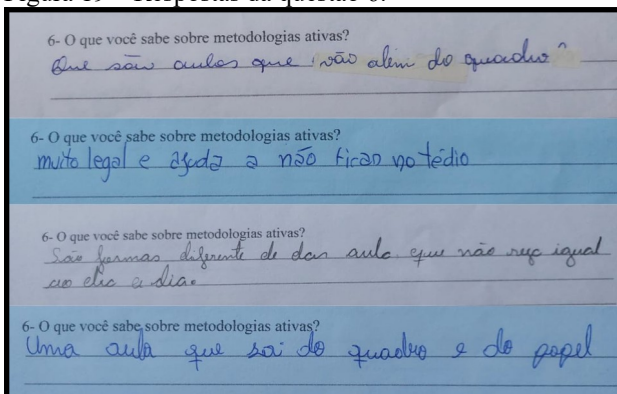 Figura 19 – Respostas da questão 6.
6- O que você sabe sobre metodologias ativas?
Que são aulas que vão além do quadro"
6- O que você sabe sobre metodologias ativas?
muito legal e ajuda a não ficar no tédio
6- O que você sabe sobre metodologias ativas?
São formas diferente de dar aula que não seja igual
ao dia a dia.
6- O que você sabe sobre metodologias ativas?
Uma aula que sai do quadro e do papel